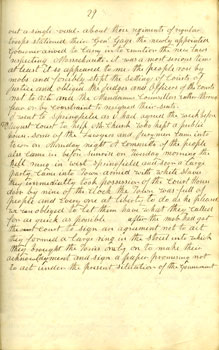 29
out a single road about three regiments of regular
troops stationed there Genl Gage the newly appointed
Governor and to carry into execution the new laws
respecting Massachusetts. it was a most serious time
at least it so appeared to me. the people rose in
mobs and forcibly stopt the setting of Courts of
justice and obliged the judges and officers of the courts
not to sit. and the Mandamus Counsellors either throw
fear or by constraint to resigned their seats.
I went to Springfield as I had agreed the week before
Court to keep with Church who kept a public
house some of the Lawyers and Jurymen came into
town on Monday night & Committees of the people
also came in before sunrise on tuesday morning the
bell rung in West Springfield and soon a large
party came into Town armed with white staves
they immediately took possession of the Court house
door by nine of the clock the town was full of
people and every one at liberty to do as he pleased
we were obliged to let them have what they called
for as quick as possible after the mob had got
the court to sign an agreement not to act
they formed a large ring in the street into which
they brought the tories only on to make their
acknowledgment and sign a paper promising not
to act under the present situation of the government